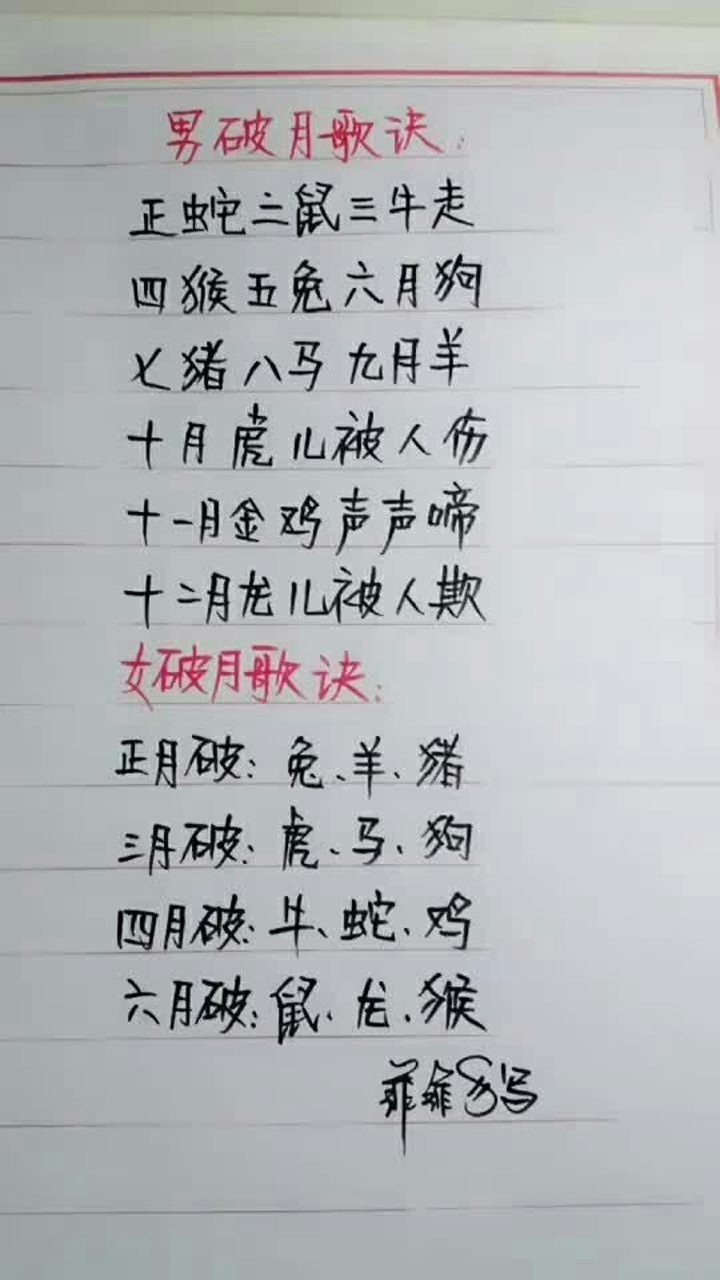 男破月歌诀:
正蛇二鼠三牛走
四猴五兔六月狗
七猪八马九月羊
十月虎儿被人伤
十一月金鸡声声啼
十二月龙儿被人欺
女破月歌诀:
正月破:兔、羊、猪
三月破:虎、马、狗
四月破:牛、蛇、鸡
六月破:鼠、龙、猴
写